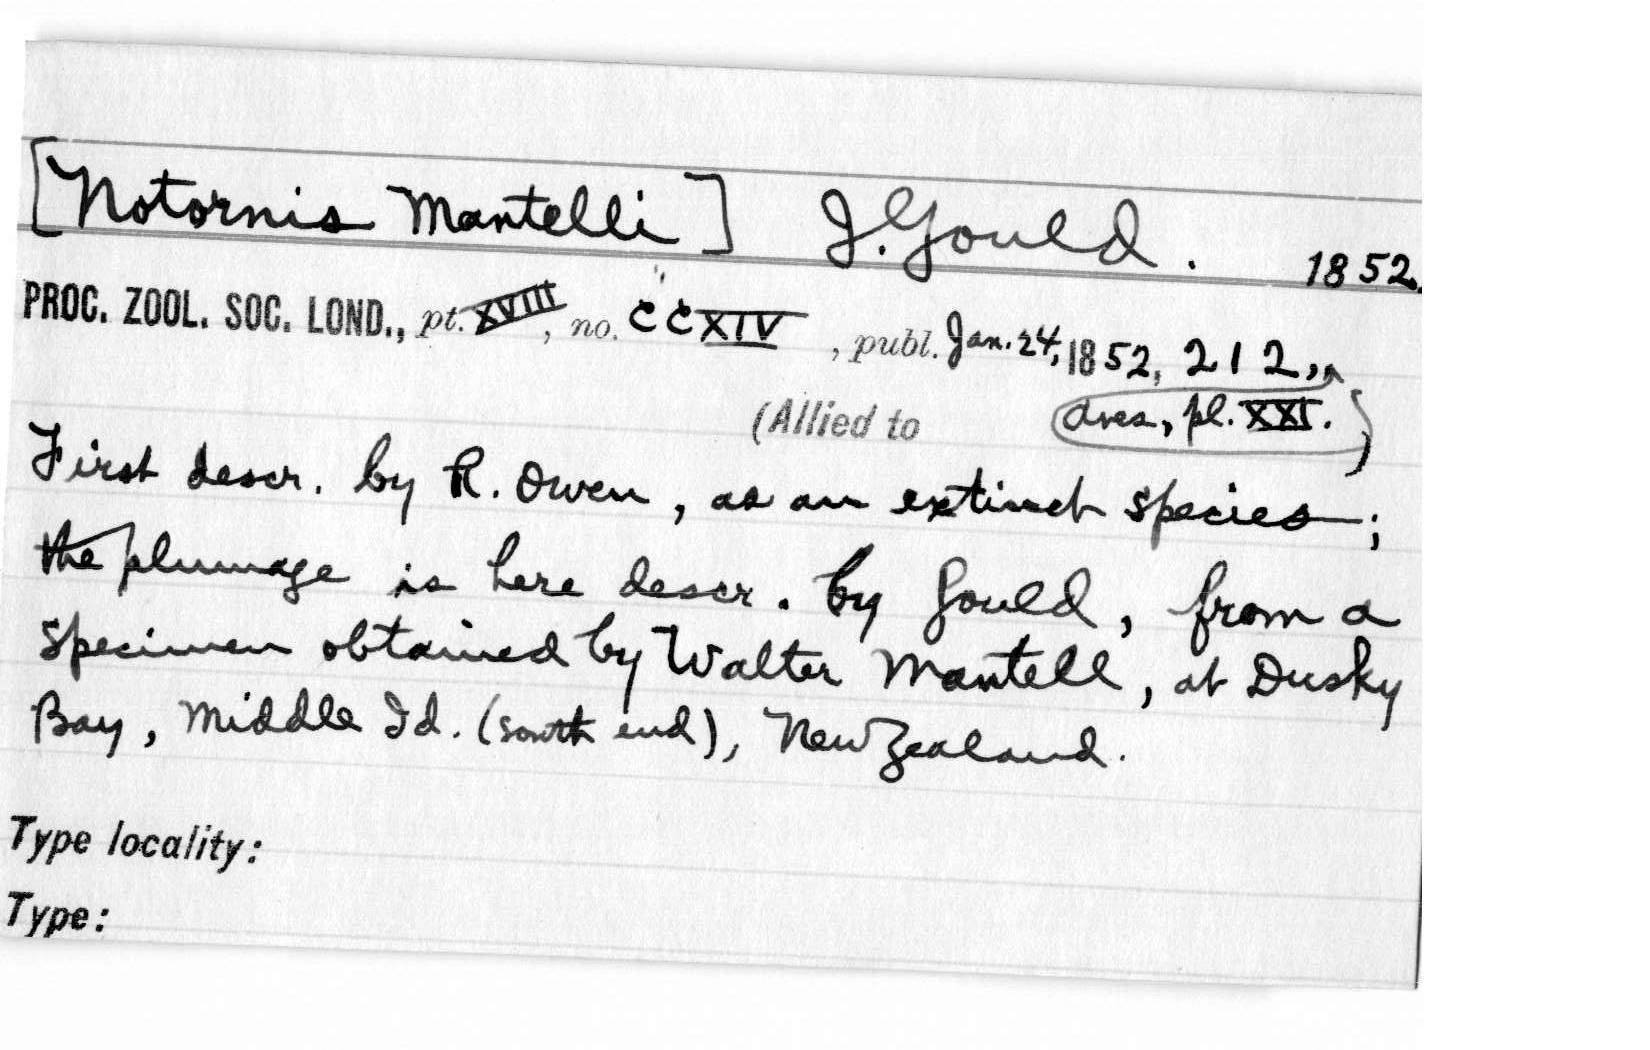 [Notornis Mantelli] J. Gould. 1852.
PROC. ZOOL. SOC. LOND., pt. XVIII, no. CCXIV, publ. Jan. 24, 1852, 212,
(Allied to Aves, pl. XXI. )
First descr. by R. Owen, as an extinct species;
the plumage is here descr. by Gould, from a
specimen obtained by Walter Mantell, at Dusky
Bay, Middle Id. (south end), New Zealand.
Type locality:
Type: